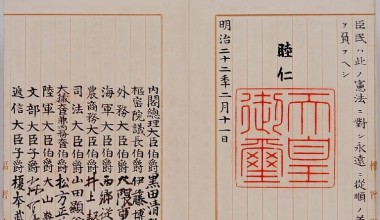 臣民ハ此ノ憲法ニ對シ永遠ニ從順ノ義
ヲ負フヘシ
睦仁
天皇御璽
明治二十二年二月十一日
内閣總理大臣伯爵黒田清
樞密院議長伯爵伊藤博
外務大臣伯爵大隈重
海軍大臣伯爵西鄕從
農商務大臣伯爵井上馨
司法大臣伯爵山田顯
大藏大臣兼內務大臣伯爵松方正
陸軍大臣伯爵大山巖
文部大臣子爵森有
遞信大臣子爵榎本武